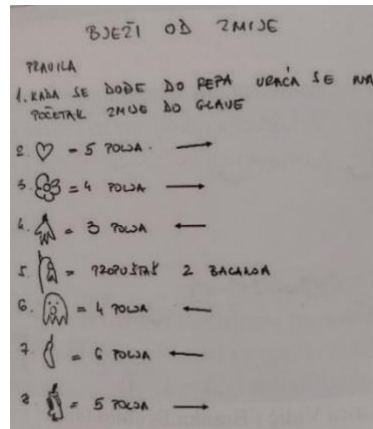 BJEŽI OD ZMIJE
PRAVILA
1. KADA SE DOĐE DO REPA VRAĆA SE NA
POČETAK ZMIJE DO GLAVE
2. = 5 POLJA. →
3. = 4 POLJA →
4. = 3 POLJA ←
5. = PROPUŠTAŠ 2 BACANJA
6. = 4 POLJA ←
7. = 6 POLJA ←
8. = 5 POLJA →